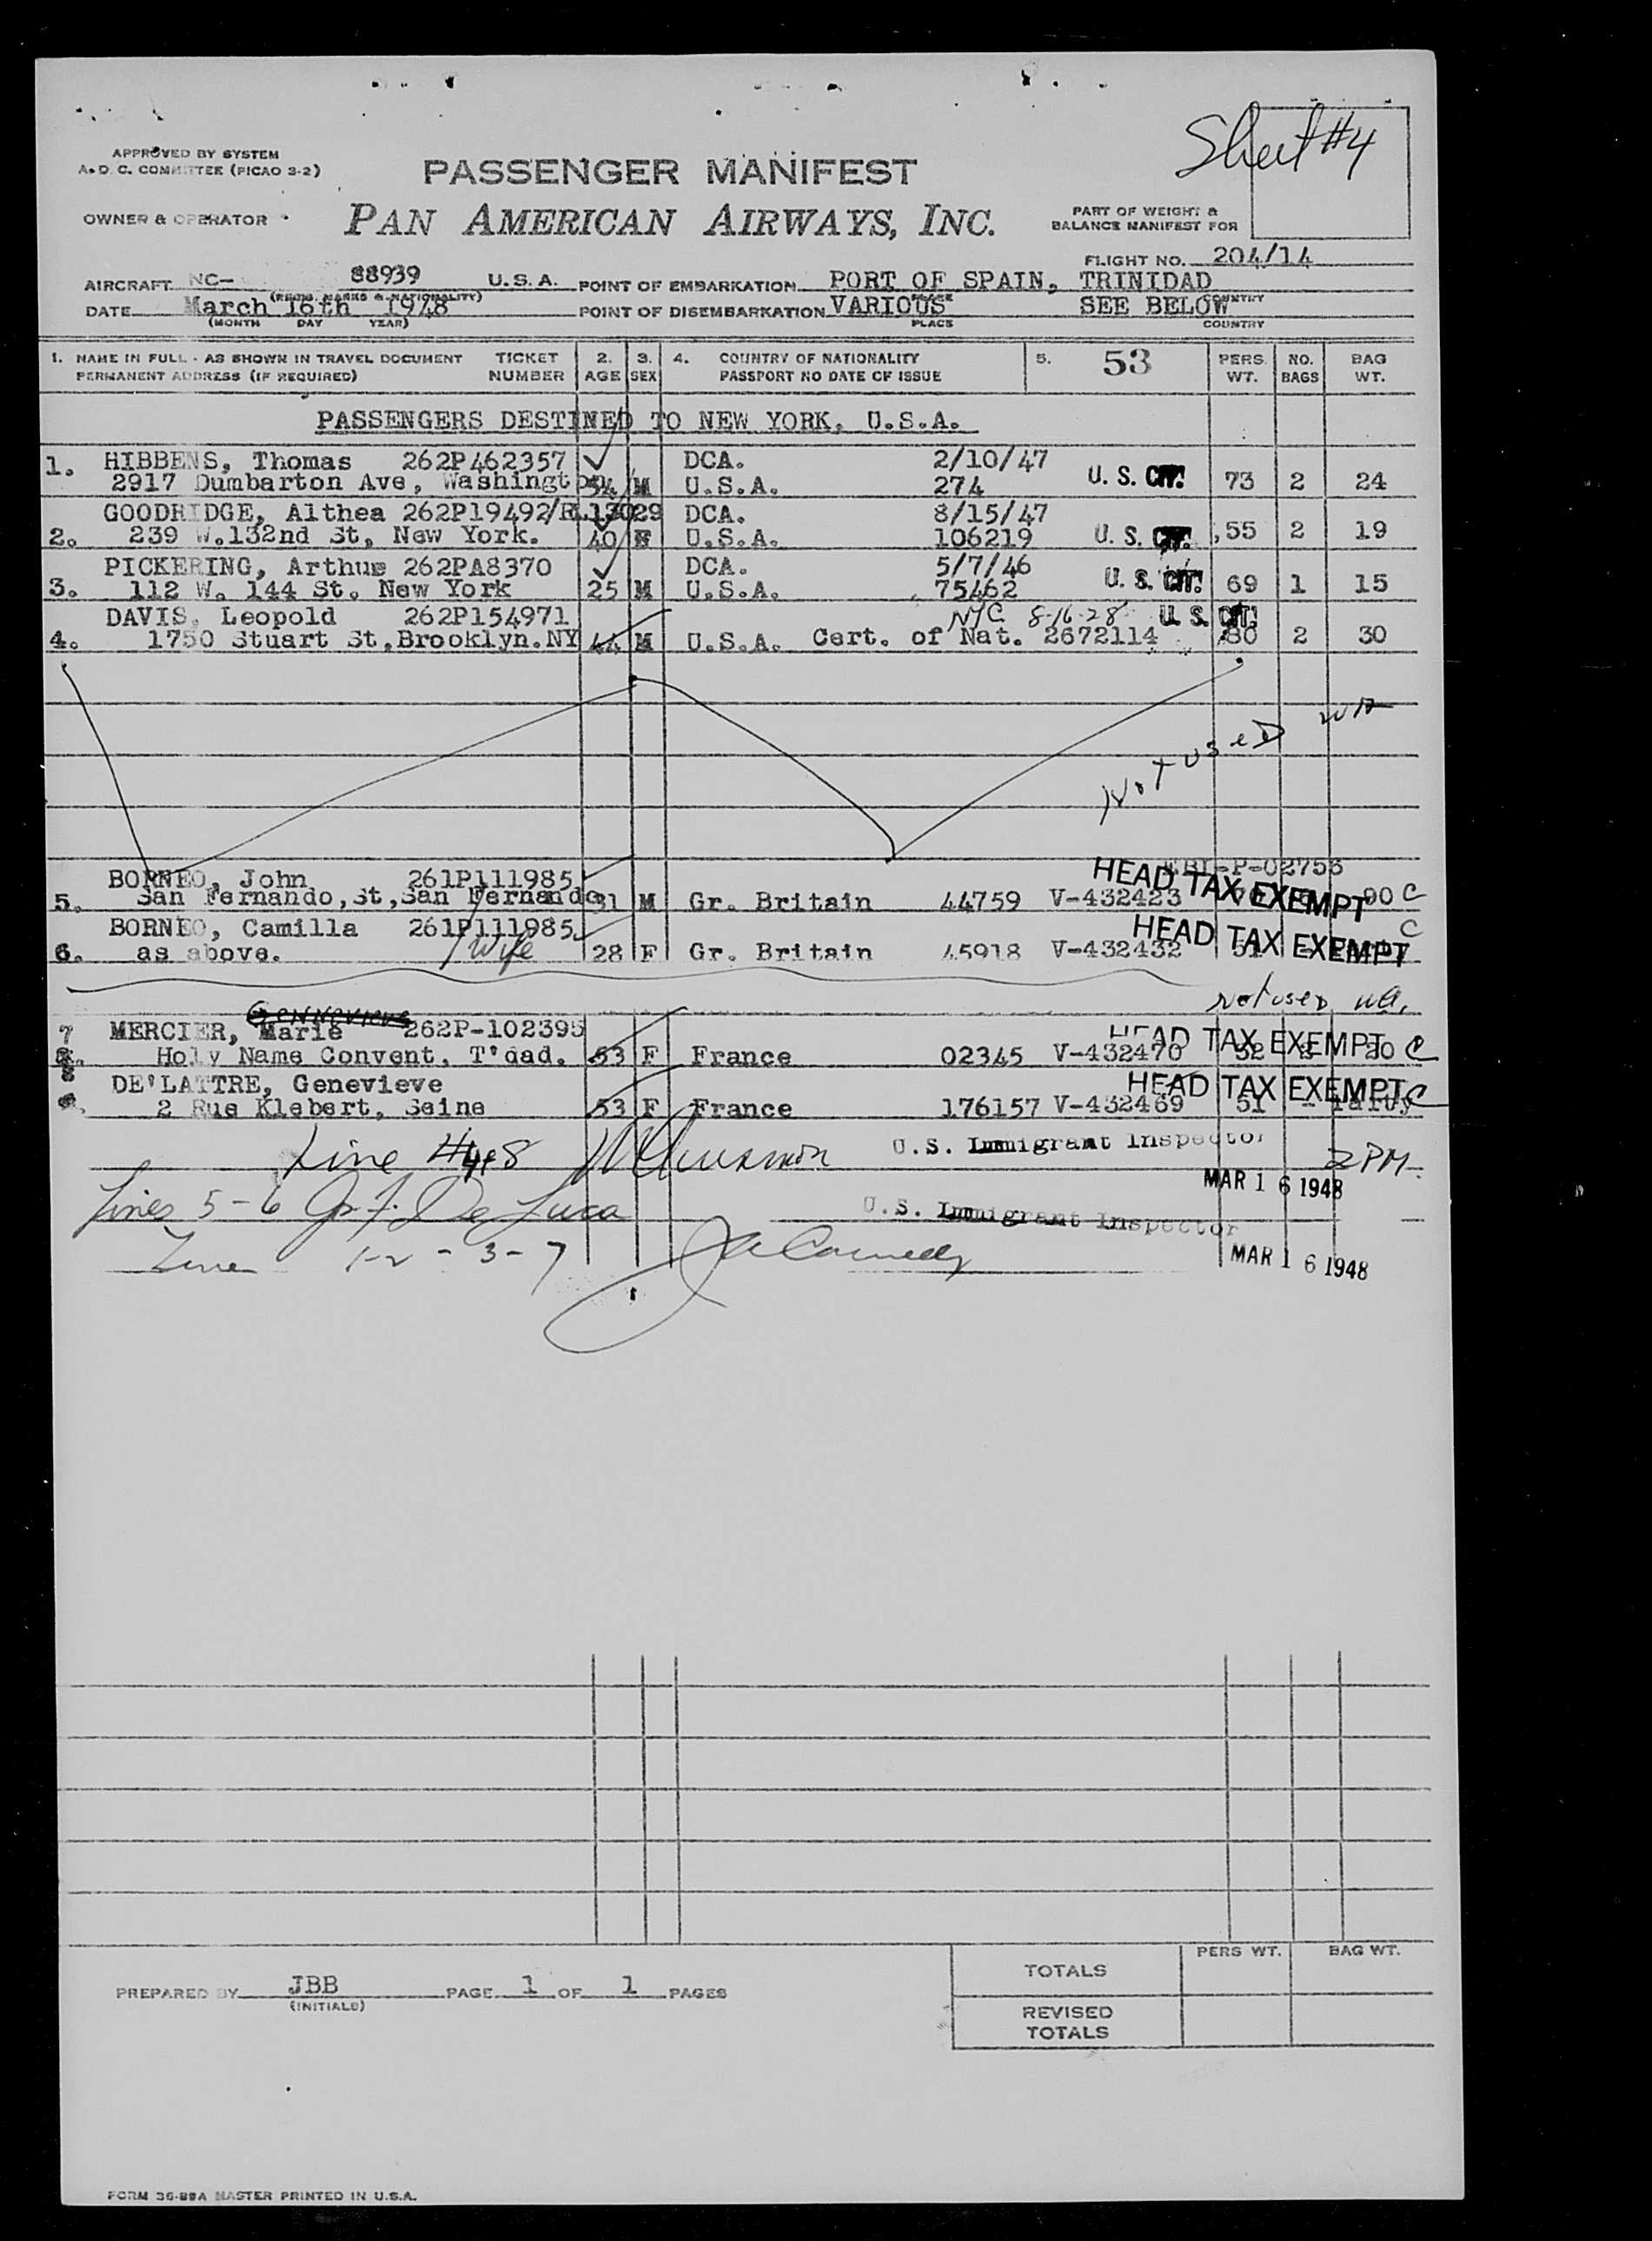 Sheet #4
APPROVED BY SYSTEM
A.D.C. COMMITTEE (PICAO 3-2)
PASSENGER MANIFEST
OWNER & OPERATOR
PAN AMERICAN AIRWAYS, INC.
PART OF WEIGHT &
BALANCE MANIFEST FOR
FLIGHT NO. 204/14
AIRCRAFT NC- 88939 U.S.A. POINT OF EMBARKATION PORT OF SPAIN, TRINIDAD
(REGIS. MARKS & NATIONALITY) PLACE COUNTRY
DATE March 16th 1948 POINT OF DISEMBARKATION VARIOUS SEE BELOW
(MONTH DAY YEAR) PLACE COUNTRY
1. NAME IN FULL - AS SHOWN IN TRAVEL DOCUMENT TICKET 2. 3. 4. COUNTRY OF NATIONALITY 5. 53 PERS. NO. BAG
PERMANENT ADDRESS (IF REQUIRED) NUMBER AGE SEX PASSPORT NO DATE OF ISSUE WT. BAGS WT.
PASSENGERS DESTINED TO NEW YORK, U.S.A.
1. HIBBENS, Thomas 262P462357 DCA. 2/10/47
2917 Dumbarton Ave, Washington 54 M U.S.A. 274 U. S. CIT. 73 2 24
GOODRIDGE, Althea 262P19492/RL13029 DCA. 8/15/47
2. 239 W.132nd St, New York. 40 F U.S.A. 106219 U. S. CIT. 55 2 19
PICKERING, Arthur 262PA8370 DCA. 5/7/46
3. 112 W. 144 St. New York 25 M U.S.A. 75462 U. S. CIT. 69 1 15
DAVIS, Leopold 262P154971 NYC 8-16-28 U. S. CIT.
4. 1750 Stuart St,Brooklyn.NY 44 M U.S.A. Cert. of Nat. 2672114 80 2 30
Not used
BORNEO, John 261P111985 HEAD TAX EXEMPT
5. San Fernando,St,San Fernando 31 M Gr. Britain 44759 V-432423 90 C
BORNEO, Camilla 261P111985 HEAD TAX EXEMPT C
6. as above. Wife 28 F Gr. Britain 45918 V-432432 51
Not used
Gennevieve
7 MERCIER, Marie 262P-102395 HEAD TAX EXEMPT
Holy Name Convent, T'dad. 53 F France 02345 V-432470 52 30 C
DE'LATTRE, Genevieve HEAD TAX EXEMPT C
8. 2 Rue Klebert, Seine 53 F France 176157 V-432469 51 -
Line 4&8 U.S. Immigrant Inspector 2PM
MAR 16 1948
Lines 5-6 De Luca U.S. Immigrant Inspector
Line 1-2-3-7
MAR 16 1948
PERS WT. BAG WT.
TOTALS
PREPARED BY JBB PAGE 1 OF 1 PAGES
(INITIALS)
REVISED
TOTALS
FORM 36-99A MASTER PRINTED IN U.S.A.